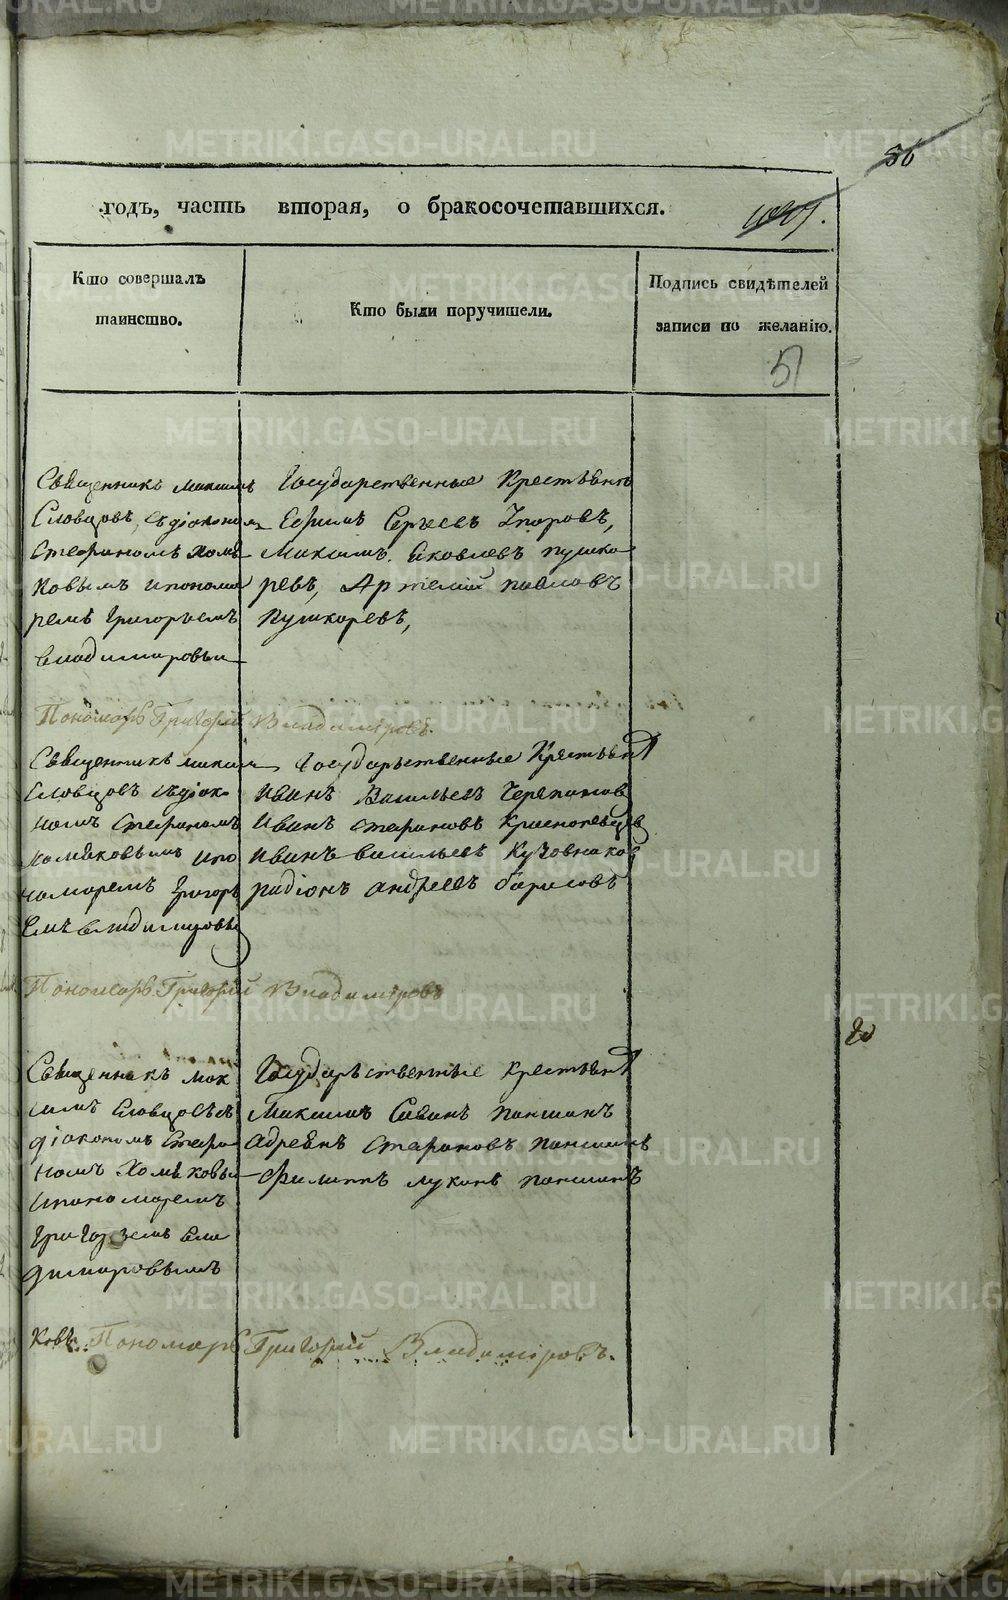 56
годъ, часть вторая, о бракосочетавшихся.
Кто совершалъ
таинство.
Кто были поручители.
Подпись свидѣтелей
записи по желанію.
51
Священникъ Максимъ
Словцовъ, съ діакономъ
Стефаномъ Хомя
ковымъ и понома
ремъ Григорьемъ
владимировы
Государственные крестьянѣ
Ефимъ Сергѣевъ
Максимъ Яковлевъ пушка
ревъ, Артемій павловъ
пушкаревъ,
Пономарь Григорій Владиміровъ.
Священникъ макси
словцовъ съ діако
номъ стефаномъ
хомяковымъ и по
номаремъ григорь
емъ владимировы
Государьственные крестьян
иванъ Васильевъ Черепанов
иванъ стефановъ красноперов
иванъ васильевъ Кузовников
радіонъ андреевъ борисовъ
Пономарь Григорій Владиміровъ
Священникъ мак
симъ Словцовъ съ
діакономъ Стефа
номъ Хомяковы
и пономаремъ
григорьемъ вла
димировымъ
Государьственные крестьян
Максимъ Саванъ паншинъ
адреянъ стефановъ паншинъ
филиппъ лукинъ паншинъ
ковъ. Пономарь Григорій Владиміровъ.
METRIKI.GASO-URAL.RU